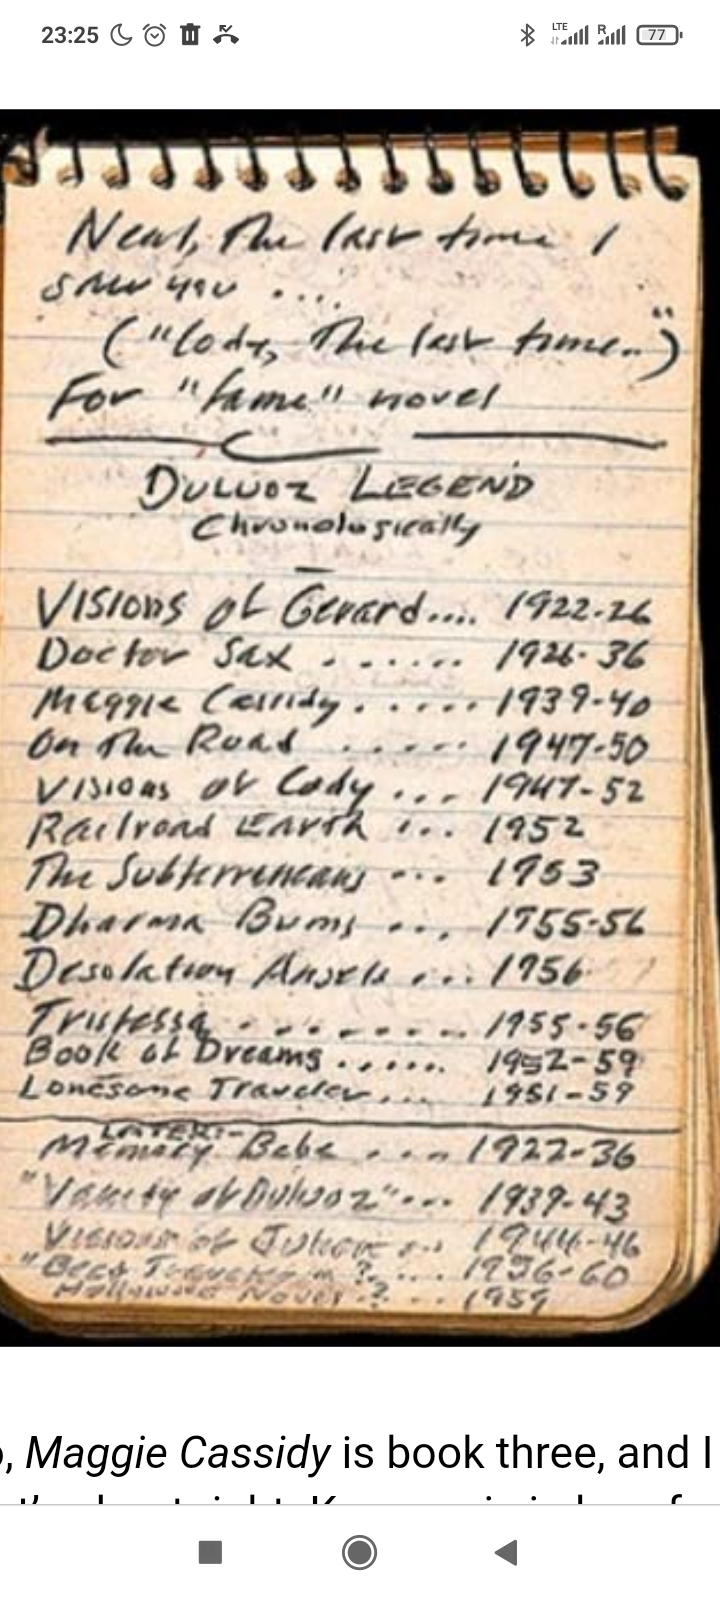 23:25
LTE
R
77
Neal, The last time I
saw you ....
("Cody, The last time..")
For "fame" novel
DULUOZ LEGEND
Chronologically
Visions of Gerard.... 1922-26
Doctor Sax ....... 1926-36
Maggie Cassidy ...... 1939-40
On The Road ...... 1947-50
Visions of Cody ... 1947-52
Railroad Earth ... 1952
The Subterraneans ... 1953
Dharma Bums .... 1955-56
Desolation Angels .... 1956
Tristessa ......... 1955-56
Book of Dreams ...... 1952-59
Lonesome Traveler.... 1951-59
LATER:-
Memory Babe .... 1922-36
"Vanity of Duluoz"... 1939-43
Visions of Julien ... 1944-46
"Beat Traveler" ?.... 1956-60
Hollywood Novel ? ... 1959
, Maggie Cassidy is book three, and I